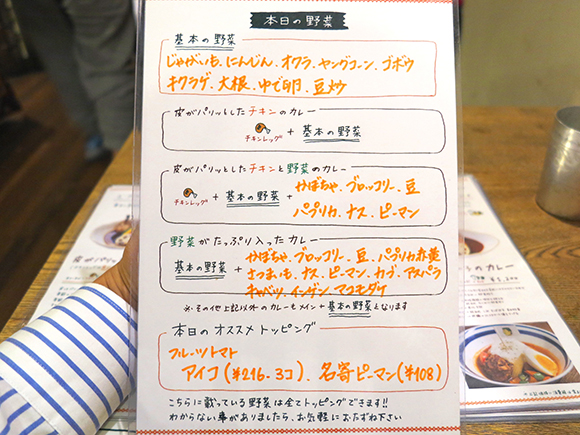 本日の野菜
基本の野菜
じゃがいも、にんじん、オクラ、ヤングコーン、ゴボウ
キクラゲ、大根、ゆで卵、豆
皮がパリッとしたチキンのカレー
チキンレッグ + 基本の野菜
皮がパリッとしたチキンと野菜のカレー
チキンレッグ + 基本の野菜 + かぼちゃ、ブロッコリー、豆
パプリカ、ナス、ピーマン
野菜がたっぷり入ったカレー
基本の野菜 + かぼちゃ、ブロッコリー、豆、パプリカ赤黄
さつまいも、ナス、ピーマン、カブ、アスパラ
キャベツ、インゲン、マコモダケ
※その他上記以外のカレーもメイン+基本の野菜となります
本日のオススメトッピング
フルーツトマト
アイコ(¥216-3コ)、名寄ピーマン(¥108)
こちらに載っている野菜は全てトッピングできます!!
わからない事がありましたら、お気軽におたずね下さい